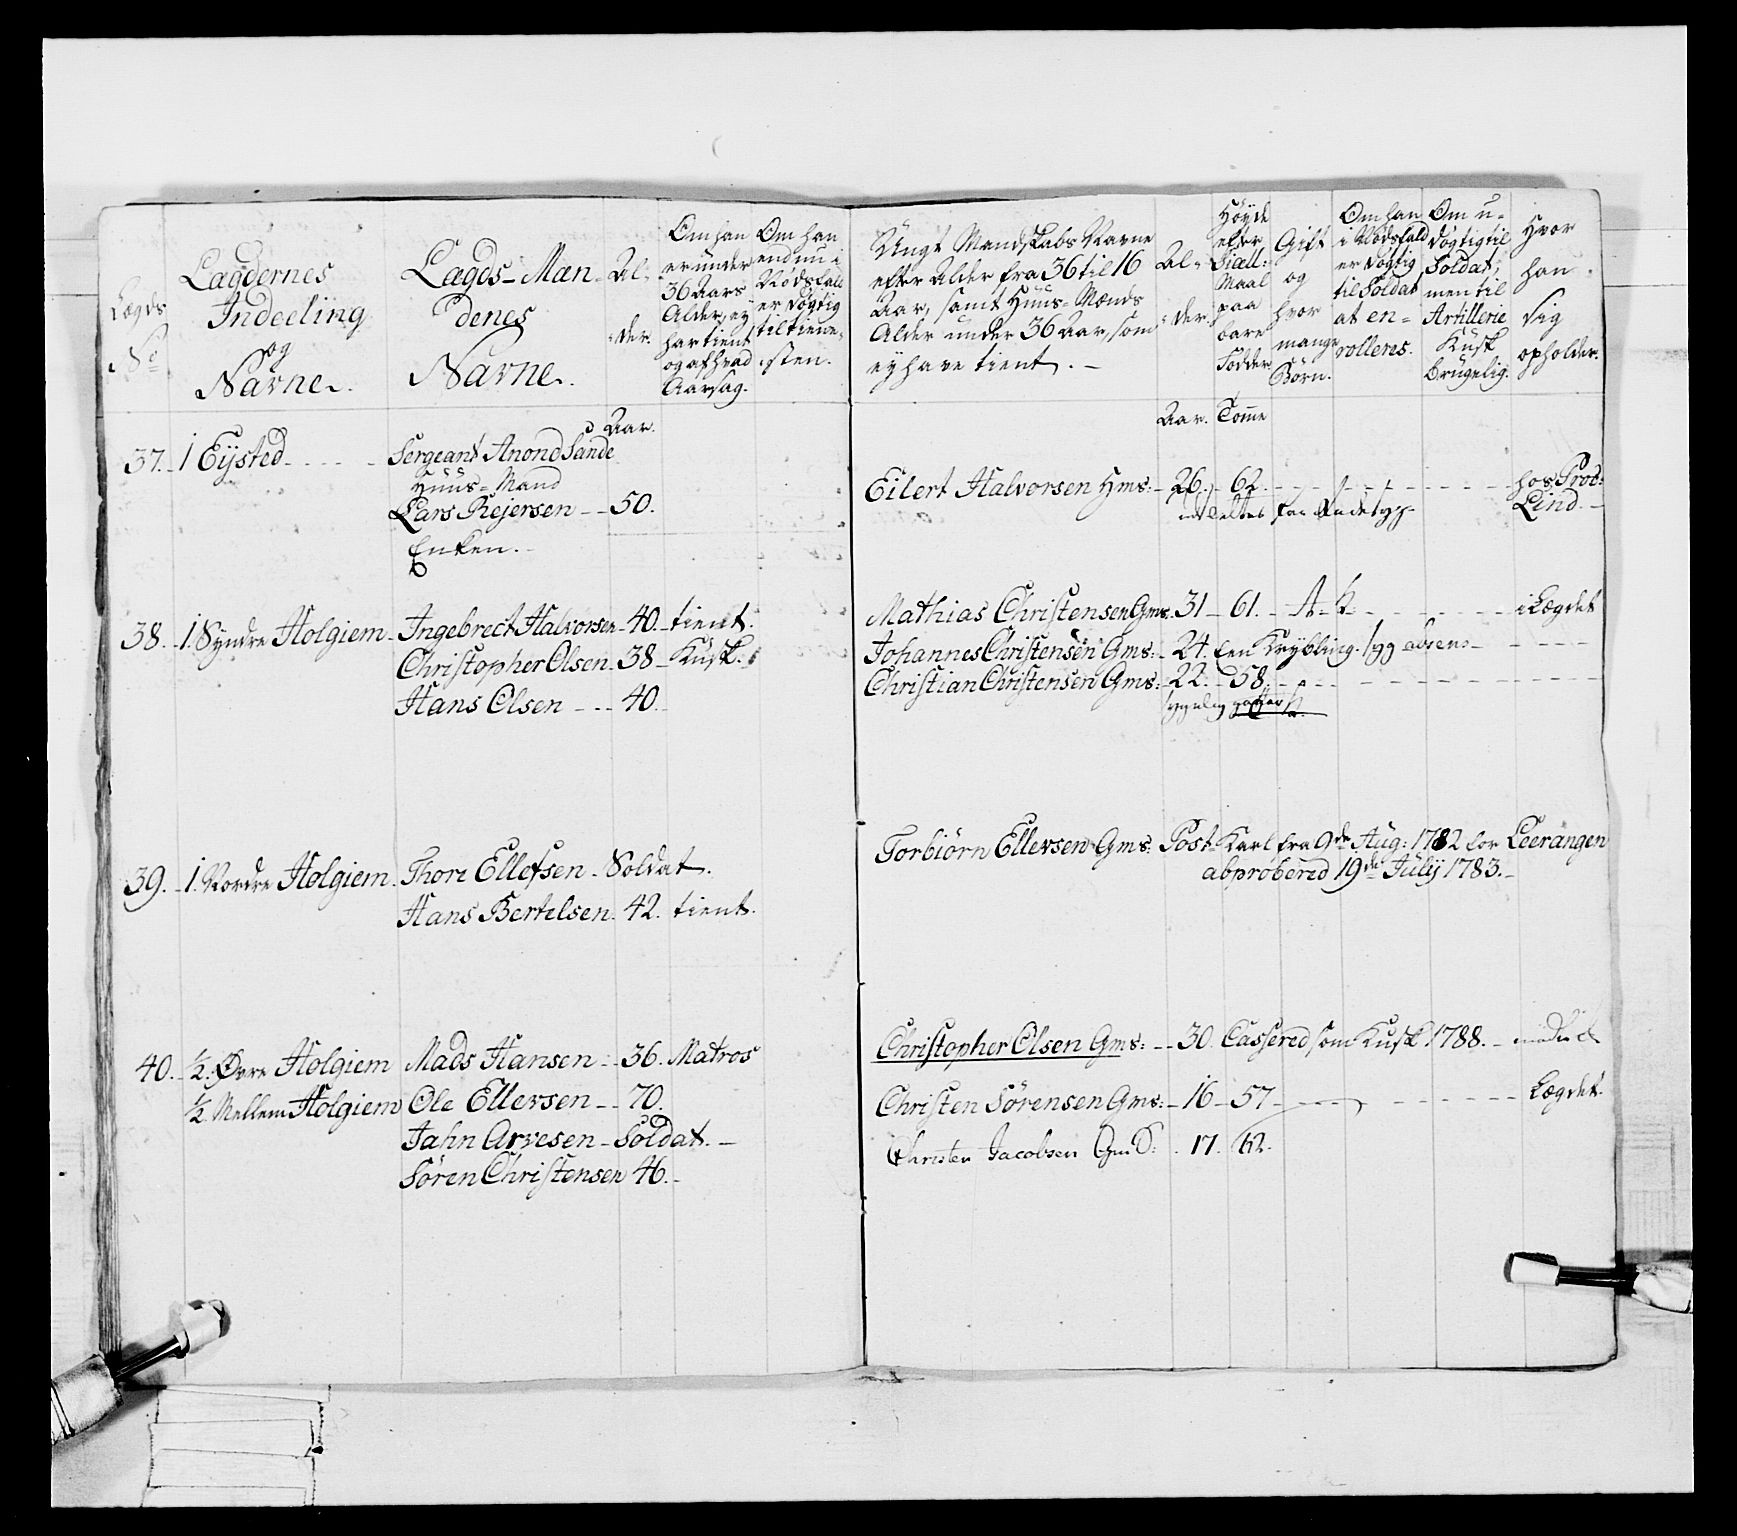 Lægds
No
Lægdernes
Indeeling
og
Navne.
Lægds-Mæn-
denes
Navne.
Al-
-der.
Om han
er under
36 Aars
Alder, ey
har tient
og af hvad
Aarsag.
Om han
endnu i
Nödsfald
er dögtig
til tiene-
sten.
Ungt Mandskabs Navne
efter Alder fra 36 til 16
Aar, samt Huus-Mænds
Alder under 36 Aar, som
ey have tient.
Al-
-der.
Höyde
efter
Siæll:
Maal
paa
bare
Födder
Gift
og
hvor
mange
Börn.
Om han
i Nödsfald
er dögtig
til Soldat
at en-
rolleres.
Om u-
dögtig til
Soldat,
men til
Artillerie
Kusk
brugelig.
Hvor
han
sig
opholder.
Aar.
Aar. Tome
37. 1 Eijsted Sergeant Anond Sande
Huus-Mand
Lars Rejersen 50.
Enken.
Eilert Halvorsen Hms: 26. 62. hos Proc:
Lind.
38. 1. Syndre Holgiem Ingebrect Halvorsen 40. tient.
Christopher Olsen 38 Kusk.
Hans Olsen 40.
Mathias Christensen Gms. 31 61. i Lægdet
Johannes Christensen Gms: 24. Een Krybling
Christian Christensen Gms: 22. 58.
39. 1. Nordre Holgiem Thore Ellefsen Soldat.
Hans Bertelsen 42. tient.
Torbiörn Ellevsen Gms: Post-Karl fra 9de Aug: 1782 for Leerangen
abpröbered 19de Julij 1783.
40. ½. Övre Holgiem Mads Hansen 36. Matros
½. Mellem Holgiem Ole Ellevsen 70.
Jahn Arvesen Soldat.
Sören Christensen 46.
Christopher Olsen Gms: 30. Cassered som Kusk 1788.
Christen Sörensen Gms: 16 57 Lægdet.
Christen Jacobsen GmS: 17. 62.